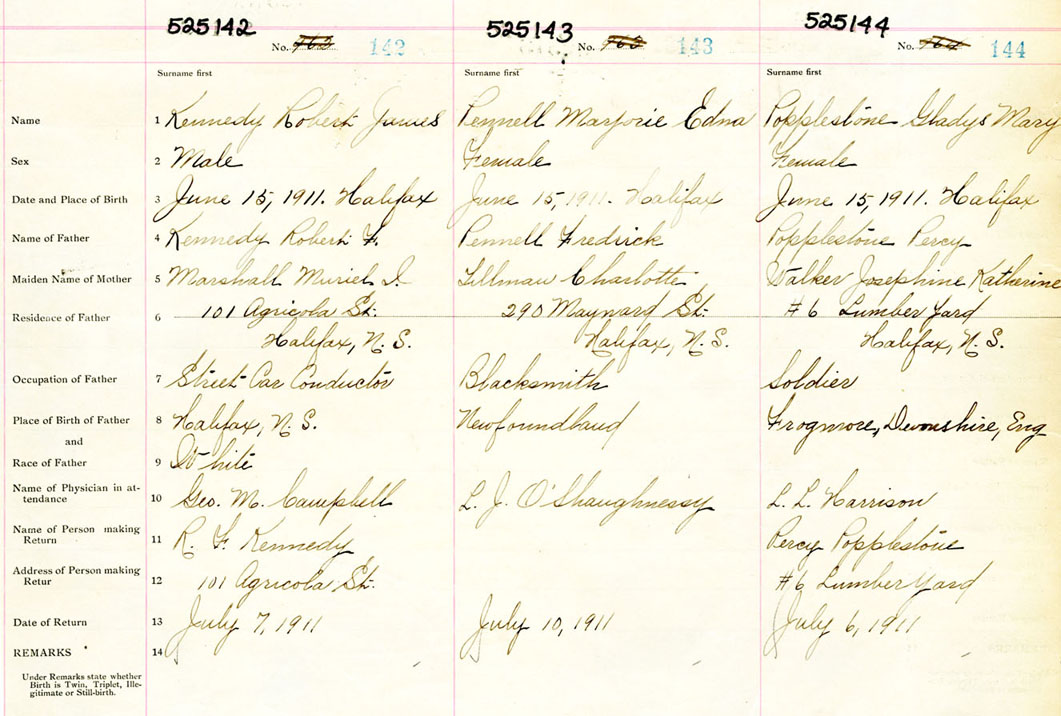 525142 525143 525144
No. 142 No. 143 No. 144
Surname first Surname first Surname first
Name 1 Kennedy Robert James Pennell Marjorie Edna Popplestone Gladys Mary
Sex 2 Male Female Female
Date and Place of Birth 3 June 15, 1911. Halifax June 15, 1911. Halifax June 15, 1911. Halifax
Name of Father 4 Kennedy Robert F. Pennell Fredrick Popplestone Percy
Maiden Name of Mother 5 Marshall Muriel I. Tillman Charlotte Walker Josephine Katherine
101 Agricola St. 290 Maynard St. #6 Lumber Yard
Residence of Father 6
Halifax, N.S. Halifax, N.S. Halifax, N.S.
Occupation of Father 7 Street Car Conductor Blacksmith Soldier
Place of Birth of Father 8 Halifax, N.S. Newfoundland Frogmore, Devonshire, Eng
and
Race of Father 9 White
Name of Physician in at-
tendance 10 Geo. M. Campbell L. J. O'Shaughnessy L. L. Harrison
Name of Person making
Return 11 R. F. Kennedy Percy Popplestone
Address of Person making
Retur 12 101 Agricola St. #6 Lumber Yard
Date of Return 13 July 7, 1911 July 10, 1911 July 6, 1911
REMARKS 14
Under Remarks state whether
Birth is Twin, Triplet, Ille-
gitimate or Still-birth.